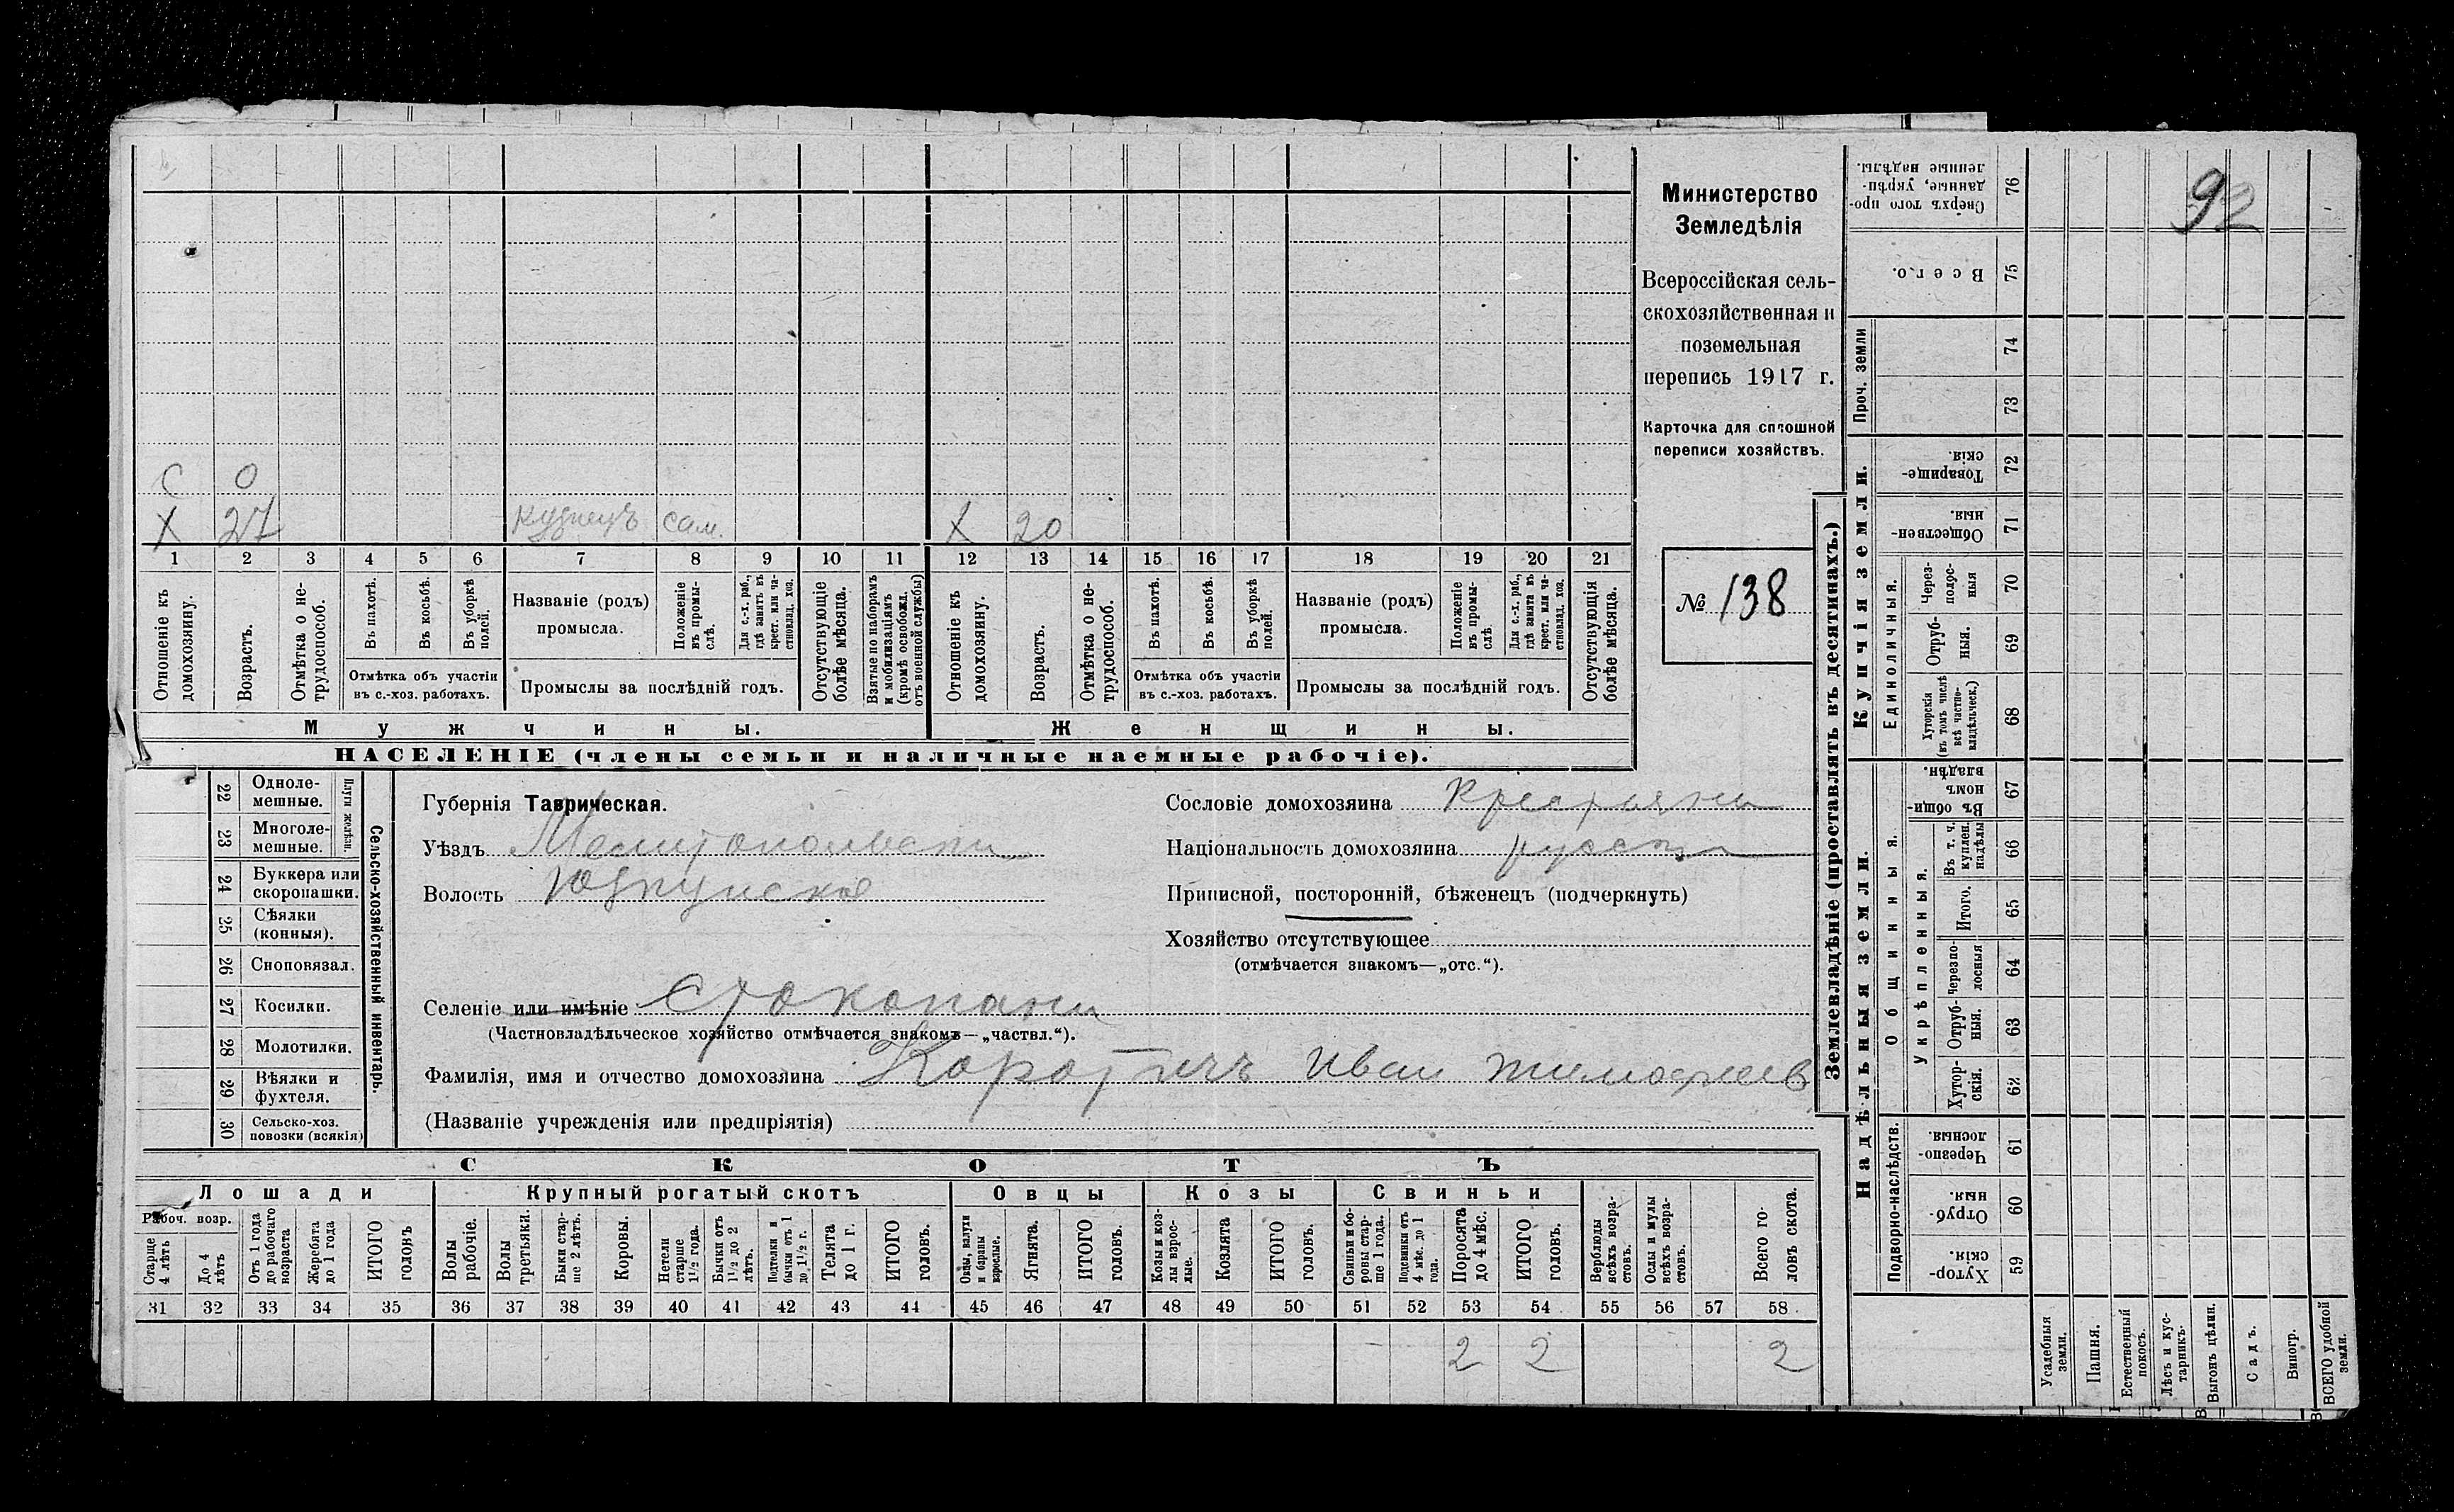 92
Министерство
Земледѣлія
Всероссійская сель-
скохозяйственная и
поземельная
перепись 1917 г.
Карточка для сплошной
переписи хозяйствъ.
№ 138
С 0
Х 27 кузнецъ сам. Х 20
1 2 3 4 5 6 7 8 9 10 11 12 13 14 15 16 17 18 19 20 21
Отношеніе къ домохозяину.
Возрастъ.
Отмѣтка о не-трудоспособ.
Въ пахотѣ.
Въ косьбѣ.
Въ уборкѣ полей.
Отмѣтка объ участіи
въ с.-хоз. работахъ.
Названіе (родъ)
промысла.
Положеніе въ промы-слѣ.
Для с.-х. раб., гдѣ занятъ въ крест. или ча-стновлад. хоз.
Промыслы за послѣдній годъ.
Отсутствующіе болѣе мѣсяца.
Взятые по наборамъ и мобилизаціямъ (кромѣ освобожд. отъ военной службы)
Отношеніе къ домохозяину.
Возрастъ.
Отмѣтка о не-трудоспособ.
Въ пахотѣ.
Въ косьбѣ.
Въ уборкѣ полей.
Отмѣтка объ участіи
въ с.-хоз. работахъ.
Названіе (родъ)
промысла.
Положеніе въ промы-слѣ
Для с.-х. раб., гдѣ занята въ крест. или ча-стновлад. хоз.
Промыслы за послѣдній годъ.
Отсутствующія болѣе мѣсяца.
Мужчины. Женщины.
НАСЕЛЕНІЕ (члены семьи и наличные наемные рабочіе).
Сельско-хозяйственный инвентарь.
Плуги желѣзн.
22 Одноле-мешные.
23 Многоле-мешные.
24 Буккера или скоропашки.
25 Сѣялки (конныя).
26 Сноповязал.
27 Косилки.
28 Молотилки.
29 Вѣялки и фухтеля.
30 Сельско-хоз. повозки (всякія)
Губернія Таврическая.
Уѣздъ Мелитопольски
Волость
Селеніе или имѣніе
(Частновладѣльческое хозяйство отмѣчается знакомъ—„частвл.“).
Фамилія, имя и отчество домохозяина Коротичъ Иван Тимофеев
(Названіе учрежденія или предпріятія)
Сословіе домохозяина Крестьяни
Національность домохозяина русски
Приписной, посторонній, бѣженецъ (подчеркнуть)
Хозяйство отсутствующее
(отмѣчается знакомъ—„отс.“).
СКОТЪ
Лошади Крупный рогатый скотъ Овцы Козы Свиньи
Рабоч. возр.
Старше 4 лѣтъ
До 4 лѣтъ
Отъ 1 года до рабочаго возраста
Жеребята до 1 года
ИТОГО головъ
Волы рабочіе.
Волы третьяки.
Быки стар-ше 2 лѣтъ.
Коровы.
Нетели старше 1½ года.
Бычки отъ 1½ до 2 лѣтъ.
Подтелки и бычки отъ 1 до 1½ г.
Телята до 1 г.
ИТОГО головъ.
Овцы, валухи и бараны взрослые.
Ягнята.
ИТОГО головъ.
Козы и коз-лы взрос-лые.
Козлята
ИТОГО головъ.
Свиньи и бо-ровы стар-ше 1 года.
Подсвинки отъ 4 мѣс. до 1 года.
Поросята до 4 мѣс.
ИТОГО головъ.
Верблюды всѣхъ возра-стовъ.
Ослы и мулы всѣхъ возра-стовъ.
Всего го-ловъ скота.
31 32 33 34 35 36 37 38 39 40 41 42 43 44 45 46 47 48 49 50 51 52 53 54 55 56 57 58
2 2 2
Землевладѣніе (проставлять въ десятинахъ.)
Купчія земли.
Надѣльныя земли.
Сверхъ того про-данные, укрѣп-ленные надѣлы. 76
Всего. 75
Проч. земли 74
73
Товарище-скія. 72
Обществен-ныя. 71
Единоличныя.
Через-полос-ныя 70
Отруб-ныя. 69
Хуторскія (въ томъ числѣ всѣ частно-владѣльческ.) 68
Общинныя.
Въ общи-номъ владѣн. 67
Укрѣпленныя.
Въ т. ч. куплен. надѣлы 66
Итого. 65
Черезпо-лосныя 64
Отруб-ныя. 63
Хутор-скія. 62
Подворно-наслѣдств.
Черезпо-лосныя. 61
Отруб-ныя. 60
Хутор-скія. 59
Усадебныя земли.
Пашня.
Естественный покосъ.
Лѣсъ и кус-тарникъ.
Выгонъ цѣлин.
Садъ.
Виногр.
ВСЕГО удобной земли.